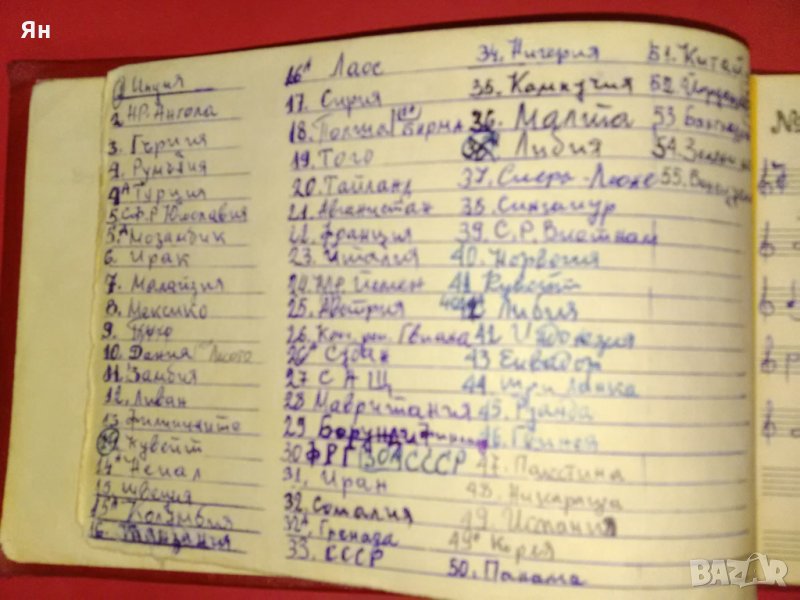 Ян
1 Индия
2 НР. Ангола
3. Гърция
4. Румъния
4А Турция
5. С.Ф.Р Югославия
5.А Мозамбик
6. Ирак
7. Малайзия
8. Мексико
9.
10. Дания
11. Замбия
12. Ливан
13. Филипините
14 Кувейт
14А Непал
15. Швеция
15А Колумбия
16. Танзания
16А Лаос
17. Сирия
18. Полша
19. Того
20. Тайланд
21. Авганистан
22. Франция
23. Италия
24. Йемен
25. Австрия
26. Гвиана
26А Судан
27 САЩ
28 Мавритания
29 Борунди
30 ФРГ 30А СССР
31. Иран
32. Сомалия
32А Гренада
33. СССР
34. Нигерия
35. Кампучия
36. Малта
Либия
37. Сиера-Леоне
38. Сингапур
39. С.Р. Виетнам
40. Норвегия
41 Кувейт
Либия
42 Индонезия
43 Еквадор
44 Шри Ланка
45. Руанда
46. Гвинея
47. Палестина
48. Никарагуа
49. Испания
49А Корея
50. Панама
51. Китай
52.
53
54.
55.
BAZAR